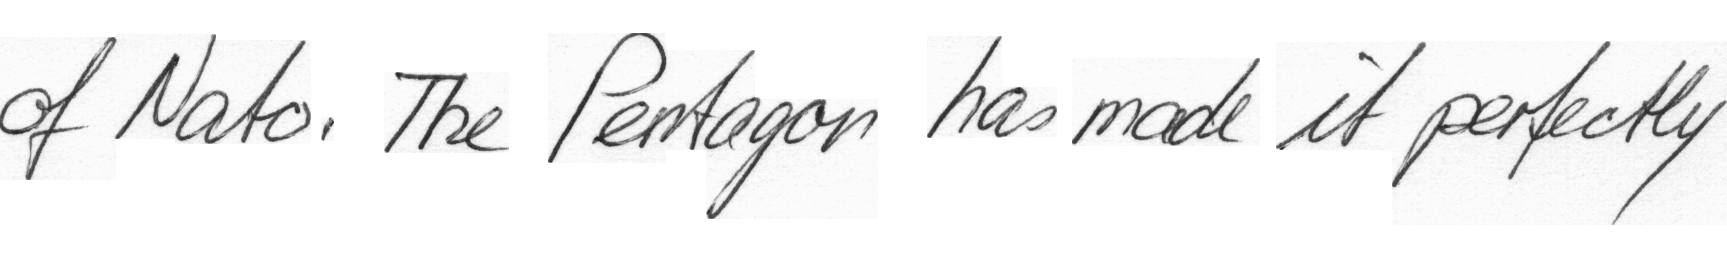 of Nato. The Pentagon has made it perfectly